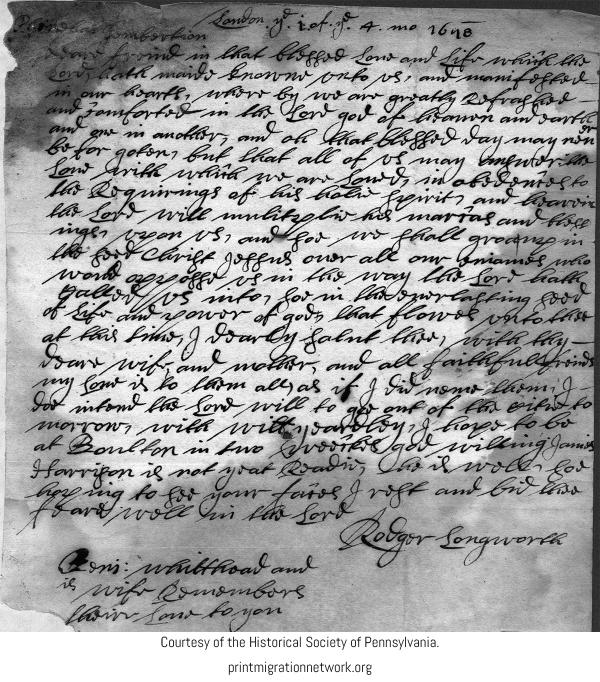 London ye i of ye 4 mo 1678
deare freind in that blessed Love and Life which the
Lord hath maide knowne unto us, and manifessed
in our hearts, where by we are greatly Refrashed
and comforted in the Lord god of heaven and earth
and one in another, and oh that blessed day may never
be for goten, but that all of us may answer the
Love with which we are Loved, in obedences to
the Requirings of his holie spirit, and heavin
the Lord will multiplie his marcies and bless
ings, upon us, and soe we shall grow up in
the seed Christ Jessus over all our eniames who
would opposse us in the way the Lord hath
Called us into, soe in the everlasting seed
of Life and power of god, that flowes unto thee
at this time, I dearly salut thee, with thy
deare wife, and mother, and all faithfull freinds
my Love is to them all, as if I did name them, I
doe intend the Lord will to goe out of the citie to
morrow, with will yeardley, I hope to be
at Boulton in two weeikes god willing James
Harrison is not yeat Readie, he is well, soe
hopping to see your faces I rest and bid thee
feare well in the Lord
Rodger Longworth
Benj: whitthead and
is wife Remembers
their Love to you
Courtesy of the Historical Society of Pennsylvania.
printmigrationnetwork.org